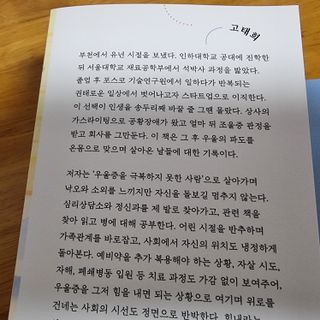 고태희
부천에서 유년 시절을 보냈다. 인하대학교 공대에 진학한
뒤 서울대학교 재료공학부에서 석박사 과정을 밟았다.
졸업 후 포스코 기술연구원에서 일하다가 반복되는
권태로운 일상에서 벗어나고자 스타트업으로 이직한다.
이 선택이 인생을 송두리째 바꿀 줄 그땐 몰랐다. 상사의
가스라이팅으로 공황장애가 왔고 얼마 뒤 조울증 판정을
받고 회사를 그만둔다. 이 책은 그 후 우울의 파도를
온몸으로 맞으며 살아온 날들에 대한 기록이다.
저자는 '우울증을 극복하지 못한 사람'으로 살아가며
낙오와 소외를 느끼지만 자신을 돌보길 멈추지 않는다.
심리상담소와 정신과를 제 발로 찾아가고, 관련 책을
찾아 읽고 병에 대해 공부한다. 어린 시절을 반추하며
가족관계를 바로잡고, 사회에서 자신의 위치도 냉정하게
돌아본다. 예비약을 추가 복용해야 하는 상황, 자살 시도,
자해, 폐쇄병동 입원 등 치료 과정도 가감 없이 보여주어,
우울증을 그저 힘을 내면 되는 상황으로 여기며 위로를
건네는 사회의 시선도 정면으로 반박한다. 힘내라는